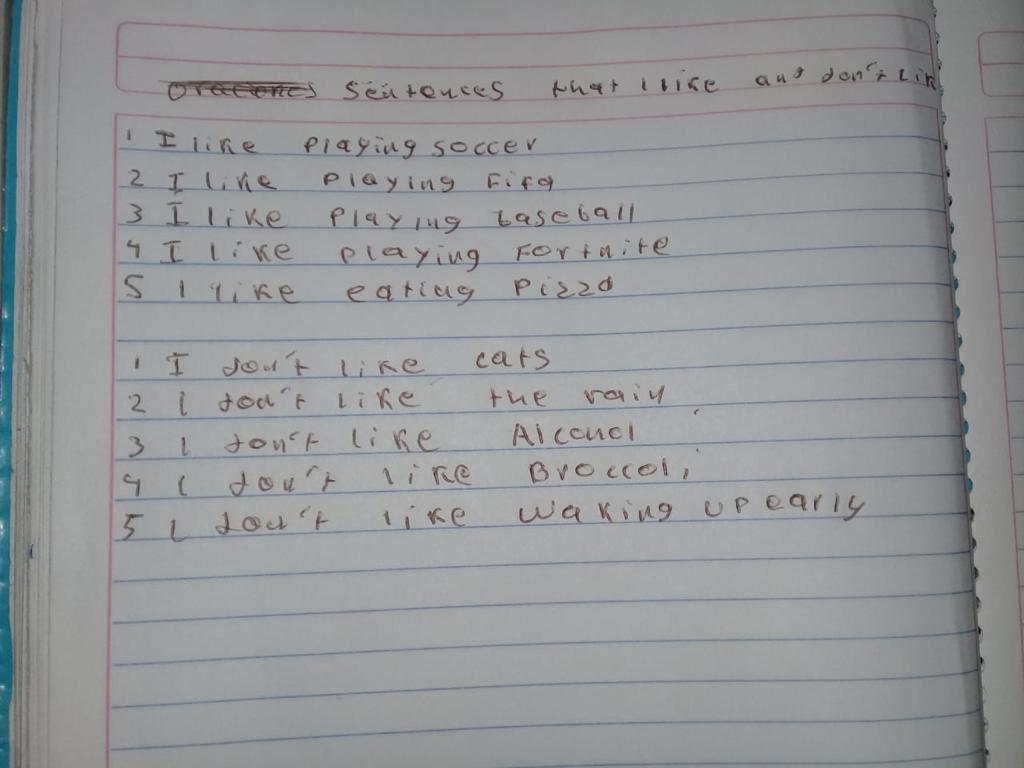 Oraciones Sentences that I like and don't lik
1 I like playing soccer
2 I like playing Fifa
3 I like playing baseball
4 I like playing Fortnite
5 I like eating Pizza
1 I don't like cats
2 I don't like the rain
3 I don't like Alcohol
4 I don't like Broccoli
5 I don't like waking up early